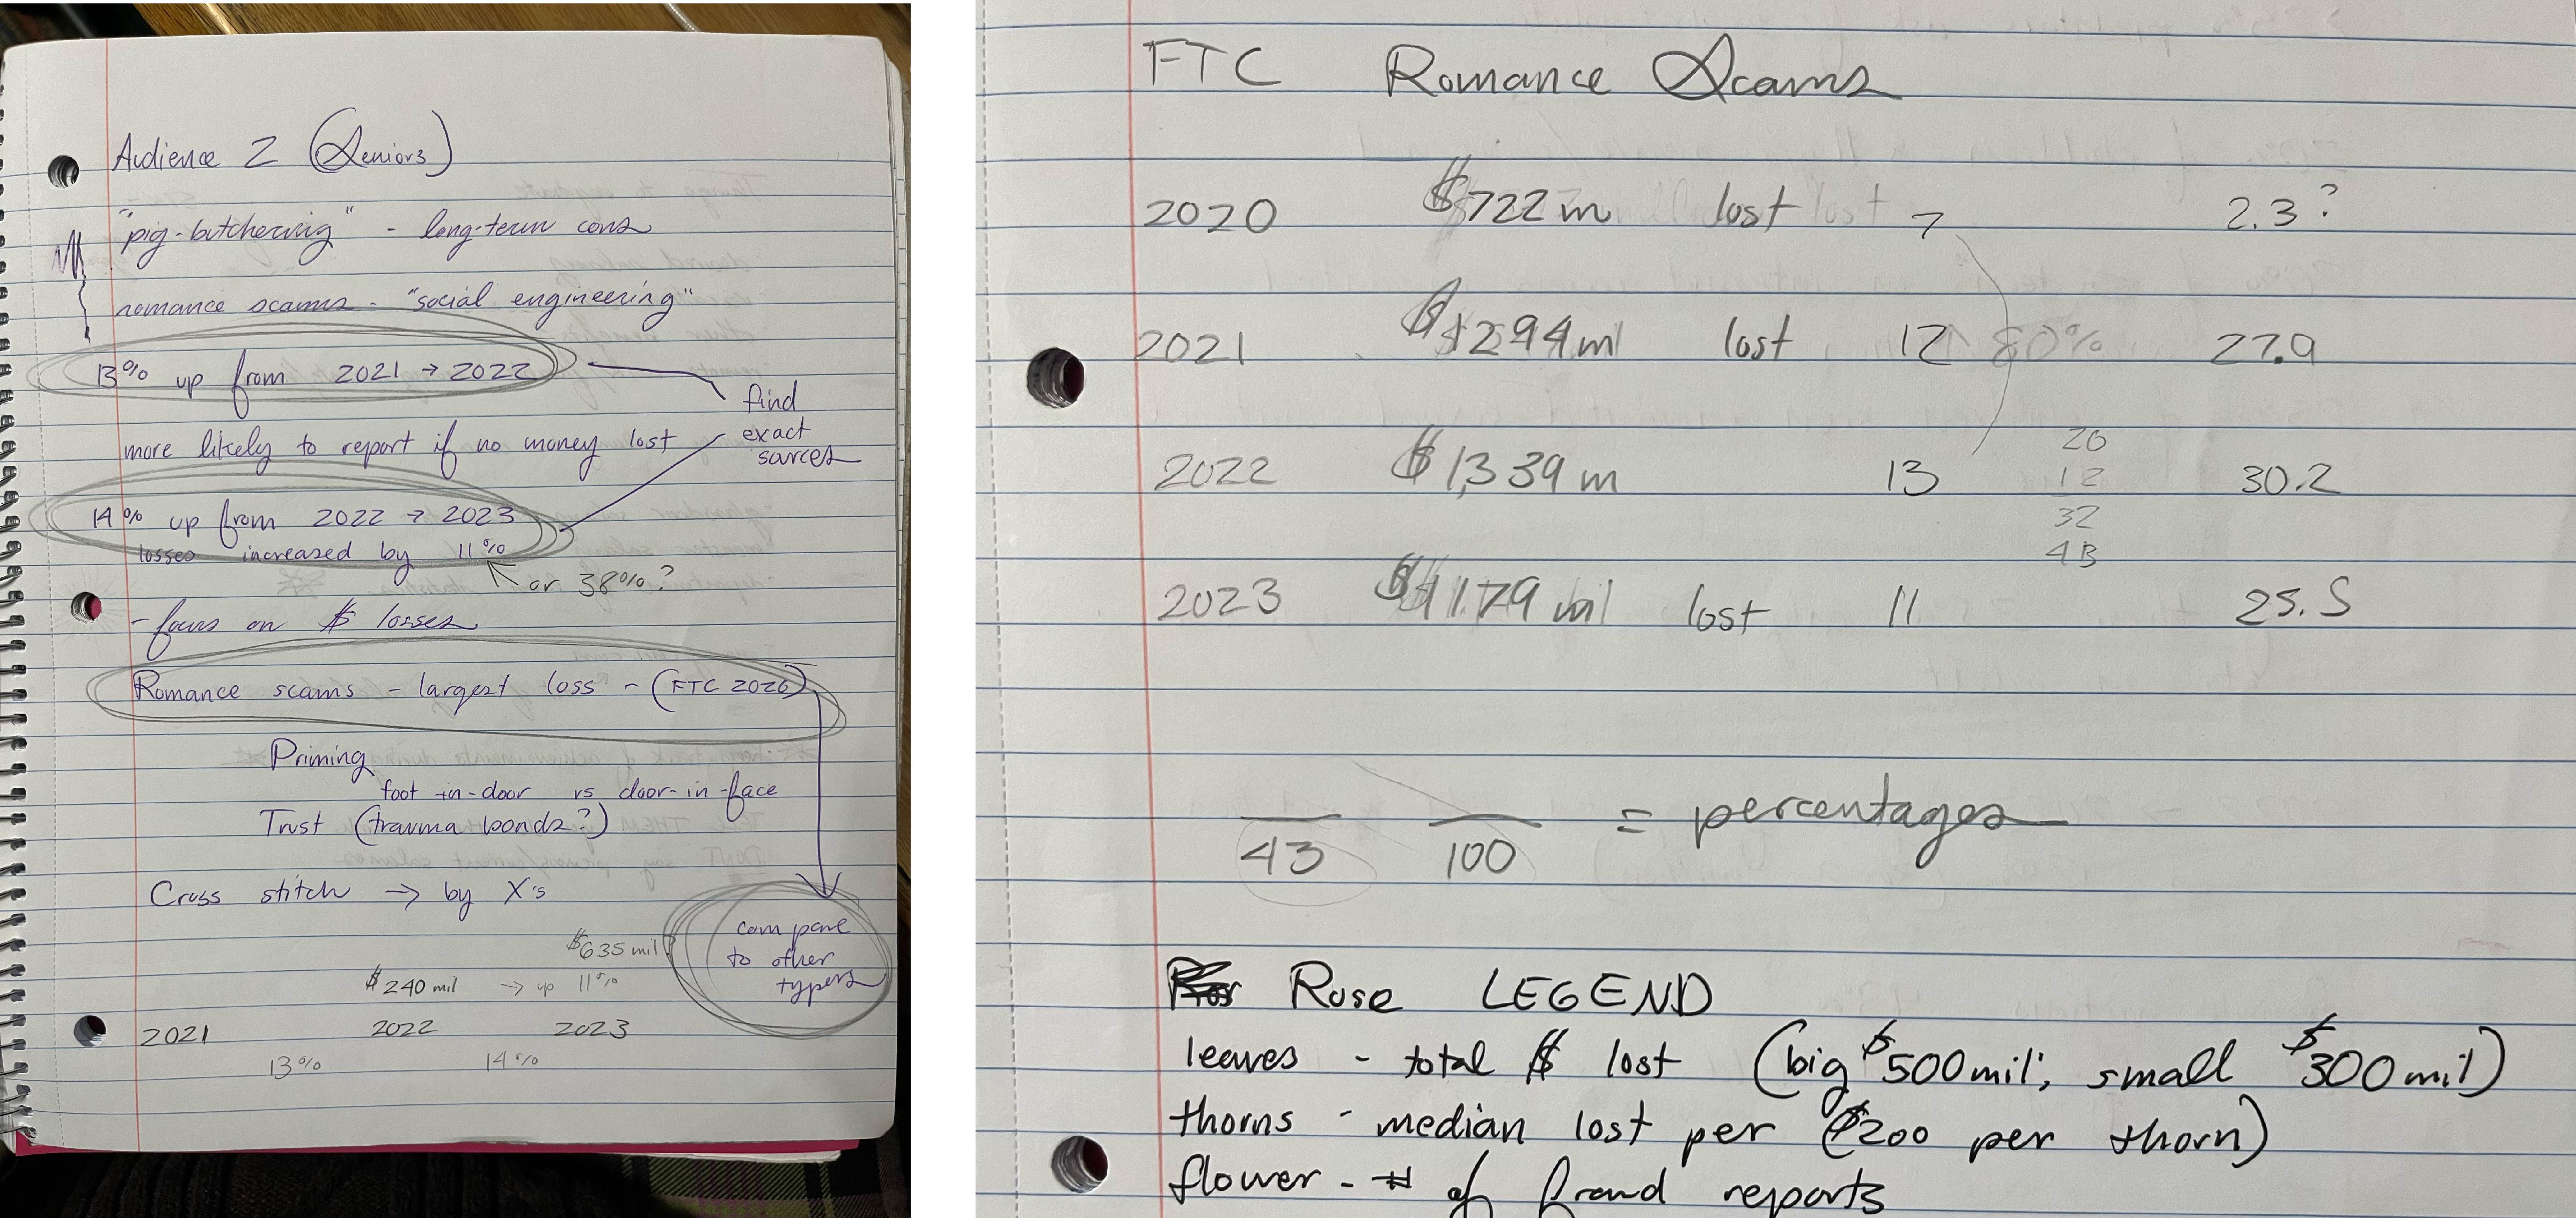 Audience 2 (Seniors)
"pig-butchering" - long-term cons
romance scams - "social engineering"
13% up from 2021 → 2022
find
exact
sources
more likely to report if no money lost
14% up from 2022 → 2023
losses increased by 11%
or 38%?
- focus on $ losses
Romance scams - largest loss - (FTC 2020)
Priming
foot-in-door vs door-in-face
Trust (trauma bonds?)
Cross stitch → by X's
compare
to other
types
$635 mil?
$240 mil → up 11%
2021 2022 2023
13% 14%
FTC Romance Scams
2020 $722 m lost 7 2.3?
2021 $1294 mil lost 12 80% 27.9
2022 $1,339 m 13 30.2
20
12
32
43
2023 $1179 mil lost 11 25.5
43 100 = percentages
Rose LEGEND
leaves - total $ lost (big $500mil, small $300mil)
thorns - median lost per ($200 per thorn)
flower - # of fraud reports